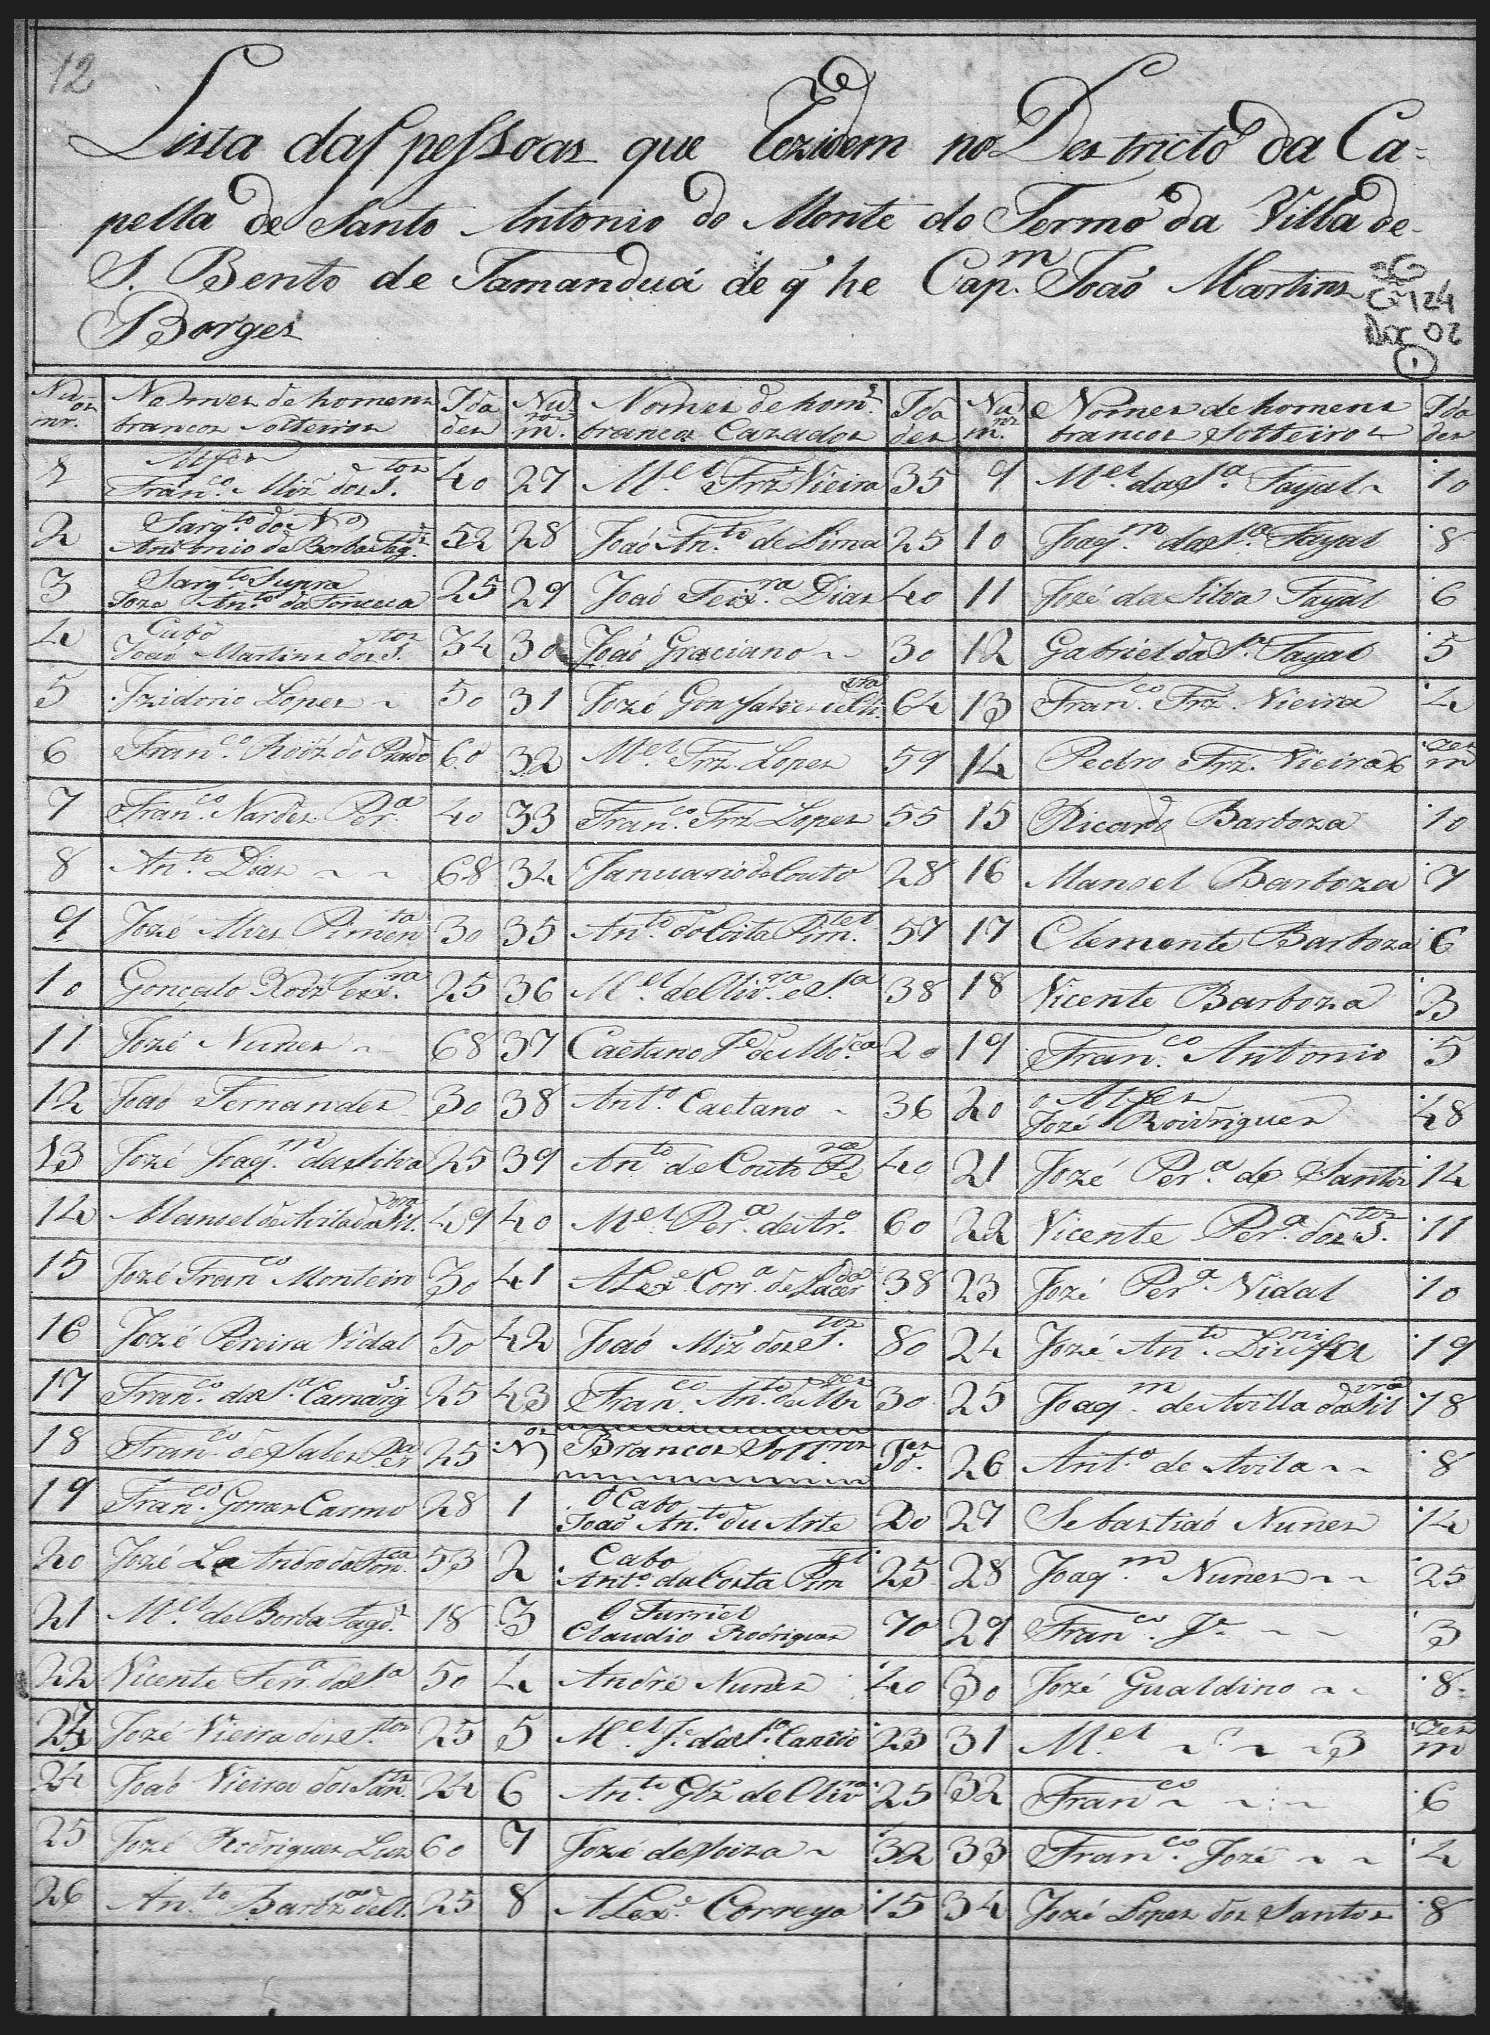 12
Lista das pessoas que Rezidem no Destricto da Ca=
pella de Santo Antonio do Monte do Termo da Villa de
S. Bento de Tamanduá de q' he Cap.m João Martins
Borges
Cx 124
Doc 02
1
Nomes de homens Ida Nomes de hom.s Ida Nomes de homens Ida
brancos des brancos Cazados des brancos Solteiros des
Alfes
1 Fran.co Miz dos S.tos 40 27 M.el Frz Vieira 35 9 M.el da S.a Fayal 10
Sarg.to do N.o
2 Antonio de Borba 52 28 João An.to de Lima 25 10 Joaq.m da S.a Fayal 8
Sarg.to Supra
3 Joze An.to da Fonceca 25 29 João Teix.ra Dias 40 11 Jozé da Silva Fayal 6
Cabo
4 João Martins dos S.tos 34 30 João Graciano 30 12 Gabriel da S.a Fayal 5
5 Izidorio Lopes 50 31 Jozé Gonsalves 64 13 Fran.co Frz. Vieira 4
6 Fran.co Roiz do Prado 60 32 M.el Frz Lopes 59 14 Pedro Frz. Vieira 6 mezes
7 Fran.co Nardes Per.a 40 33 Fran.co Frz Lopes 55 15 Ricardo Barboza 10
8 An.to Dias 68 34 Januario do Couto 28 16 Manoel Barboza 7
9 Jozé Alves Pimenta 30 35 An.to da Costa Pim.tel 57 17 Clemente Barboza 6
10 Goncalo Roiz Teix.ra 25 36 M.el de Oliv.ra e S.a 38 18 Vicente Barboza 3
11 Jozé Nunes 68 37 Caetano 20 19 Fran.co Antonio 5
o Alfes
12 João Fernandes 30 38 Ant.o Caetano 36 20 Jozé Roidrigues 48
13 Jozé Joaq.m da Silva 25 39 An.to de Couto 40 21 Jozé Per.a de Santos 14
14 Manoel de Avila da Sil.vra 49 40 M.el Per.a de Ar.o 60 22 Vicente Per.a dos S.tos 11
15 Jozé Fran.co Monteiro 30 41 ALex.e Corr.a de Lacerda 38 23 Jozé Per.a Vidal 10
16 Jozé Pereira Vidal 50 42 João Miz dos S.tos 80 24 Jozé An.to 19
17 Fran.co da S.a Camarg.s 25 43 Fran.co An.to 30 25 Joaq.m de Avilla da Sil.vra 18
18 Fran.co de Sales Per.a 25 N.os Brancos Solt.ros 26 Ant.o de Avila 8
O Cabo
19 Fran.co Gomes Carmo 28 1 João An.to du Arte 20 27 Sebastião Nunes 14
Cabo
20 Jozé Leandro da Fon.ca 53 2 Ant.o da Costa Pim.tel 25 28 Joaq.m Nunes 25
O Furriel
21 M.el de Borba 18 3 Claudio Rodrigues 70 29 Fran.co J.e 3
22 Vicente Ferr.a da S.a 50 4 André Nunes 40 30 Jozé Gualdino 8
23 Jozé Vieira dos S.tos 25 5 M.el J.e da S.a 23 31 M.el 3 mezes
24 João Vieira dos San.tos 24 6 An.to Glz de Oliv.ra 25 32 Fran.co 6
25 Jozé Rodrigues Luz 60 7 Jozé de Soiza 32 33 Fran.co Jozé 4
26 An.to Barbz.a 25 8 ALex.e Correya 15 34 Jozé Lopes dos Santos 8